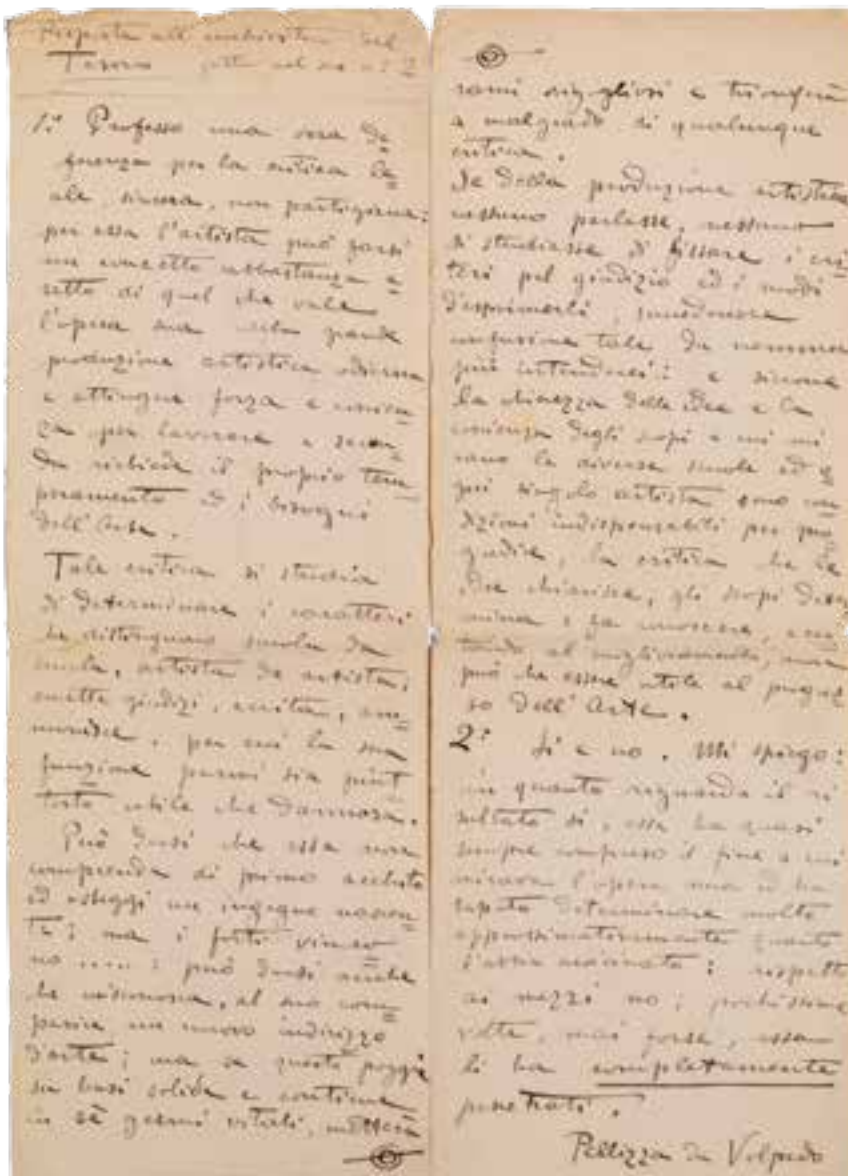 Risposta all'inchiesta del
Tesoro fatta nel suo n: 2
1: Professo una vera de=
ferenza per la critica le=
ale sincera, non partigiana:
per essa l'artista può farsi
un concetto abbastanza e=
satto di quel che vale
l'opera sua nella grande
produzione artistica odierna
e attingere forza e coscien=
za per lavorare a secon=
da richiede il proprio tem=
peramento ed i bisogni
dell'Arte.
Tale critica si studia
di determinare i caratteri
che distinguono scuola da
scuola, artista da artista;
emette giudizi, eccita, am=
monisce, per cui la sua
funzione parmi sia piut
tosto utile che dannosa.
Può darsi che essa non
comprenda di primo acchito
ed osteggi un ingegno nascen=
te; ma i forti vinco
no .....; può darsi anche
che misconosca, al suo com=
parire, un nuovo indirizzo
d'arte; ma se questo poggia
su basi solide e contiene
in sè germi vitali, metterà
rami rigogliosi e trionferà
a malgrado di qualunque
critica.
Se della produzione artistica
nessuno parlasse, nessuno
si studiasse di fissare i cri
teri pel giudizio ed i modi
d'esprimerli, succederebbe
confusione tale da nemmeno
più intenderci: e siccome
la chiarezza delle idee e la
coscienza degli scopi a cui mi
rano le diverse scuole ed o
gni singolo artista sono con
dizioni indispensabili per pro
gredire, la critica che le
idee chiarisce, gli scopi deter
mina e fa conoscere,
tendo al miglioramento, non
può che essere utile al progres
so dell'Arte.
2: Si e no. Mi spiego:
in quanto riguarda il ri
sultato si, essa ha quasi
sempre compreso il fine a cui
mirava l'opera mia ed ha
saputo determinare molto
approssimativamente quanto
l'avessi avvicinato: rispetto
ai mezzi no; pochissime
volte, mai forse, essa
li ha completamente
penetrati.
Pellizza da Volpedo